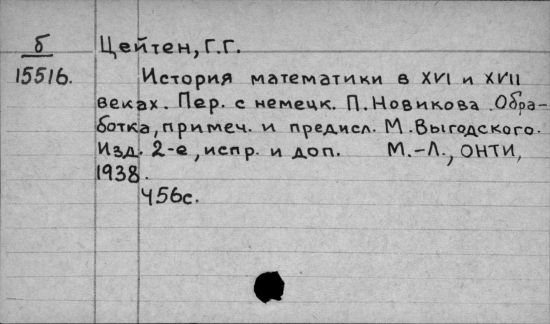 б Цейтен, Г.Г.
15516.
История математики в XVI и XVII
веках. Пер. с немецк. П. Новикова. Обра-
ботка, примеч. и предисл. М. Выгодского.
Изд. 2-е, испр. и доп. М.-Л., ОНТИ,
1938.
456с.